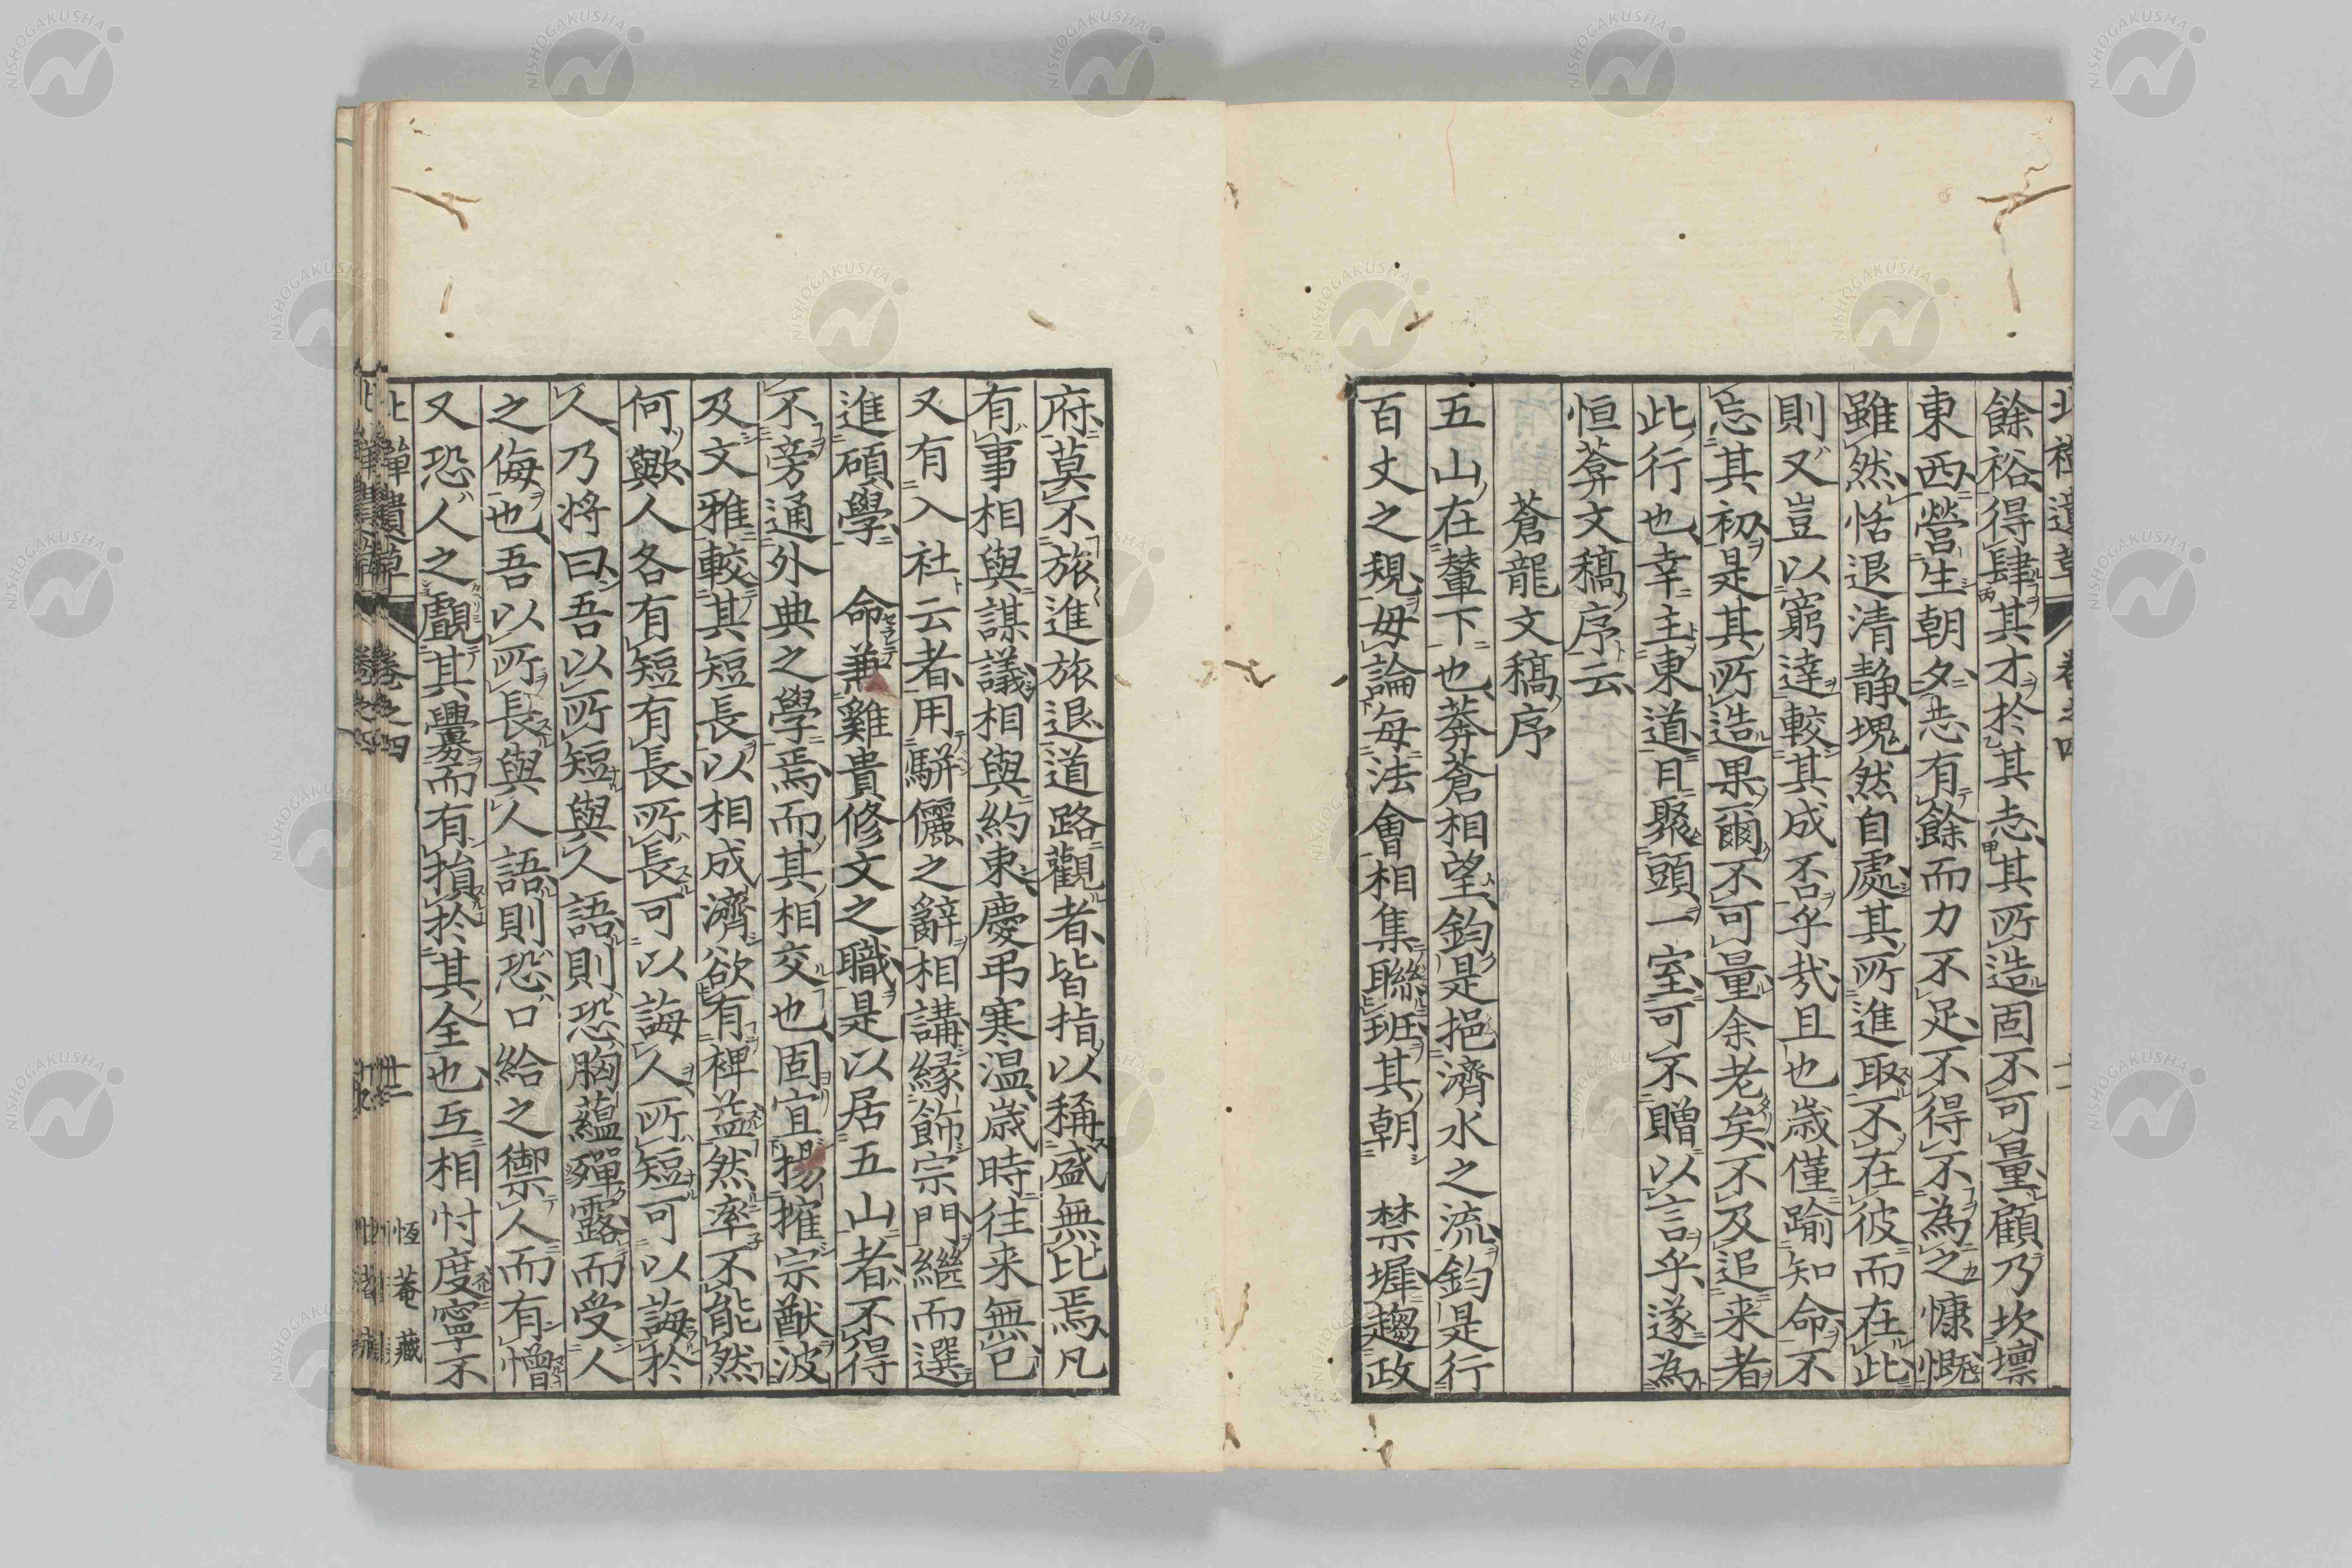 餘裕得肆其才於其志其所造固不可量顧乃坎壈
東西營生朝夕志有餘而力不足不得不為之慷慨
雖然恬退清靜塊然自處其所進取不在彼而在此
則又豈以窮達較其成否乎哉且也歳僅踰知命不
忘其初是其所造果爾不可量余老矣不及追来者
此行也幸主東道且聚頭一室可不贈以言乎遂為
恒菴文稿序云
蒼龍文稿序
五山在輦下也莽蒼相望鈞是挹濟水之流鈞是行
百丈之規毋論每法會相集聯班其朝 禁墀趨政
府莫不旅進旅退道路觀者皆指以稱盛無比焉凡
有事相與謀議相與約束慶弔寒温歳時往来無已
又有入社云者用駢儷之辭相講縁飾宗門繼而選
進碩學 命兼雞貴修文之職是以居五山者不得
不旁通外典之學焉而其相交也固宜揚搉宗猷波
及文雅較其短長以相成濟欲有裨益然率不能然
何歟人各有短有長所長可以誨人所短可以誨於
人乃将曰吾以所短與人語則恐胸蘊殫露而受人
之侮也吾以所長與人語則恐口給之禦人而有憎
又恐人之覰其釁而有損於其全也互相忖度寧不
北禅遺草 巻之四 廿二 恆菴藏